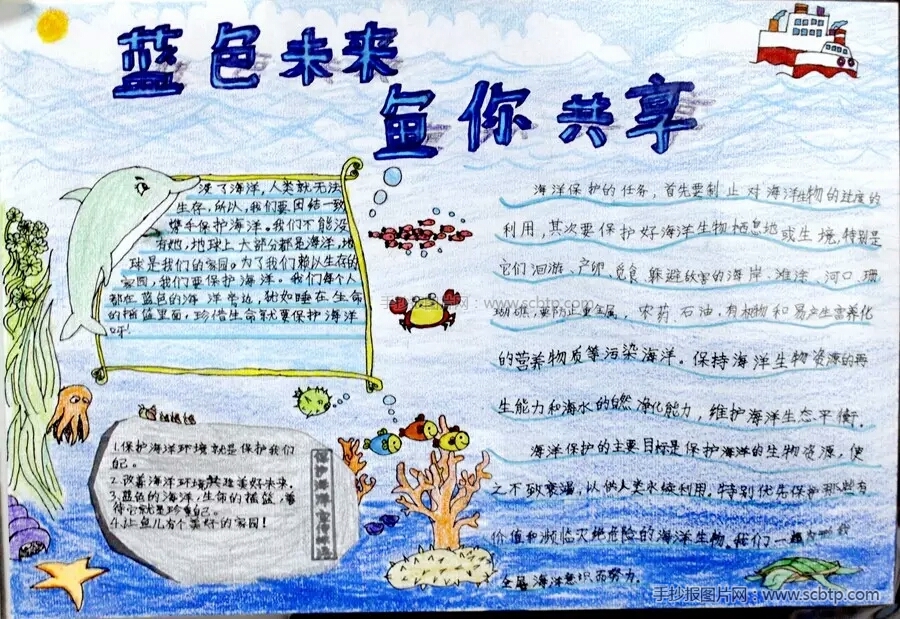 蓝色未来
鱼你共享
没了海洋,人类就无法
生存,所以,我们要团结一致
携手保护海洋。我们不能没
有她,地球上大部分都是海洋,地
球是我们的家园。为了我们赖以生存的
家园,我们要保护海洋。我们每个人
都在蓝色的海洋岸边,犹如睡在生命
的摇篮里面,珍惜生命就要保护海洋
呀!
1.保护海洋环境就是保护我们
自己。
2.改善海洋环境共建美好未来。
3.蓝色的海洋,生命的摇篮,善
待它就是珍重自己。
4.让鱼儿有个美好的家园!
保护海洋宣
海洋保护的任务,首先要制止对海洋生物的过度的
利用,其次要保护好海洋生物栖息地或生境,特别是
它们洄游、产卵、觅食、躲避敌害的海岸、滩涂、河口、珊
瑚礁,要防止重金属,农药石油,有机物和易产生营养化
的营养物质等污染海洋。保持海洋生物资源的再
生能力和海水的自然净化能力,维护海洋生态平衡.
海洋保护的主要目标是保护海洋的生物资源,使
之不致衰竭,以供人类永续利用。特别优先保护那些有
价值和濒临灭绝危险的海洋生物。我们一
全民海洋意识而努力.
手抄报图片网:www.scbtp.com
手抄报图片网:www.scbtp.com